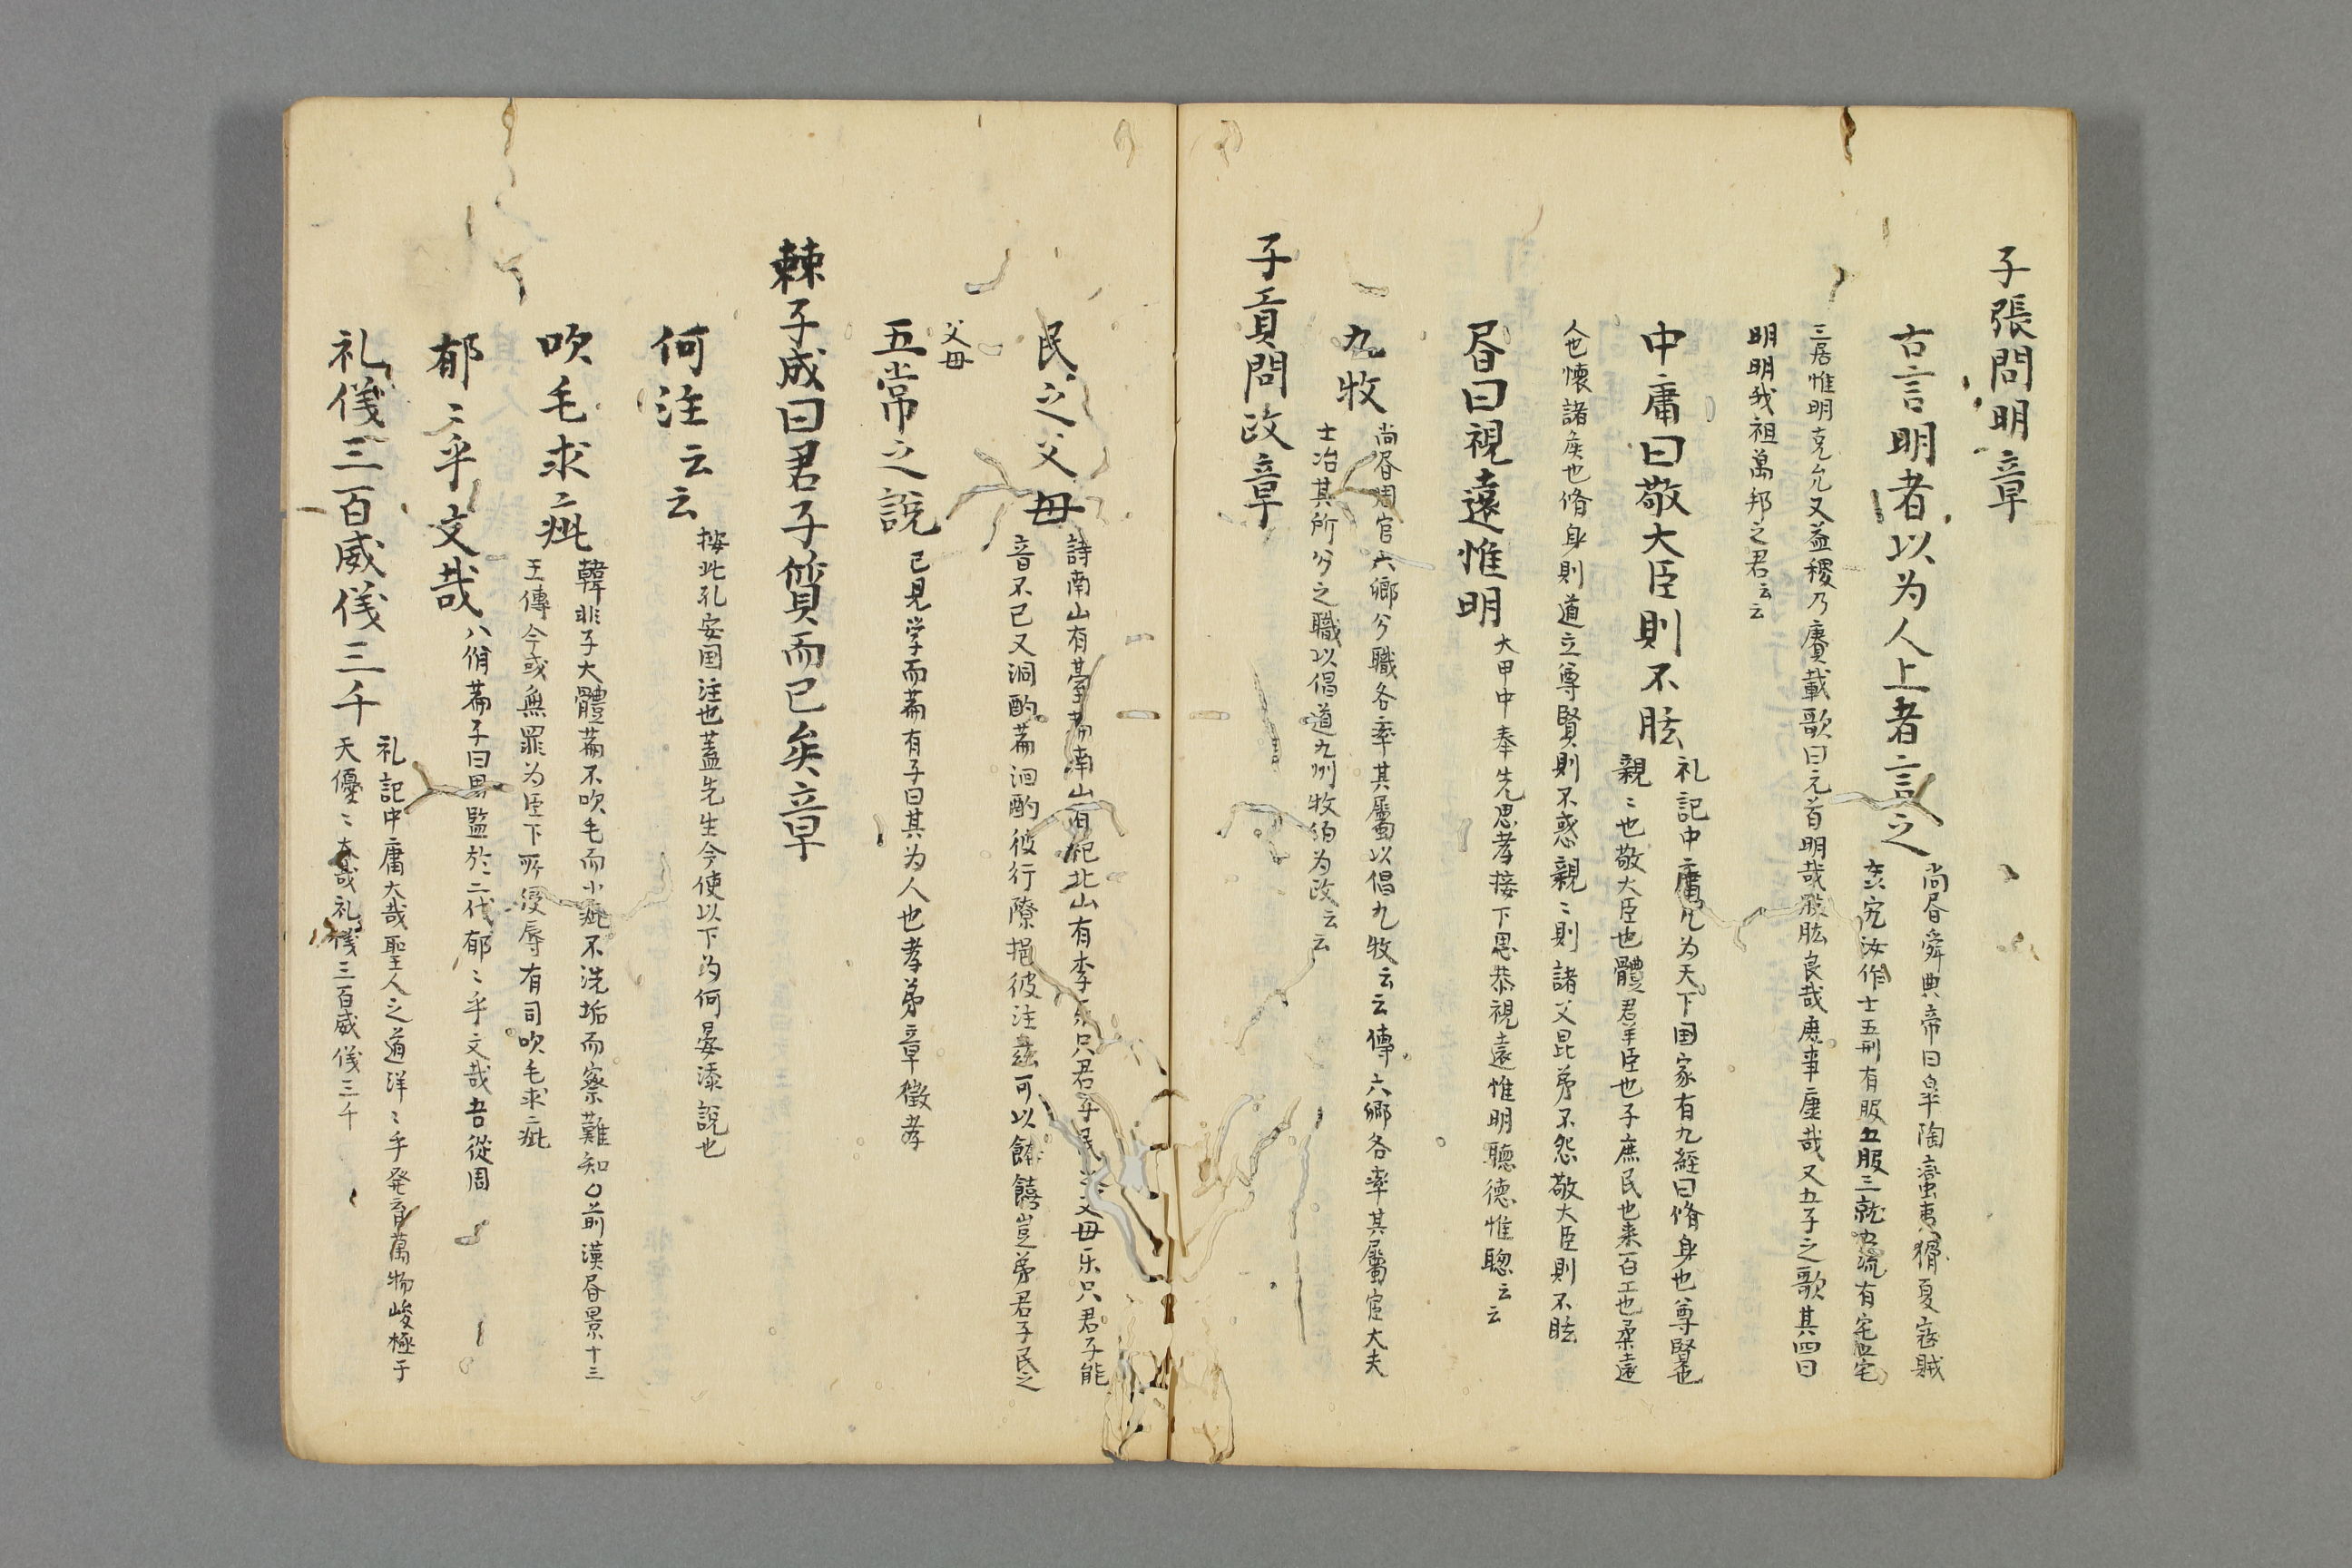 子張問明章
古言明者以为人上者言之
尚昏舜典帝曰皐陶蛮夷猾夏寇賊
宄汝作士五刑有服五服三就五流有宅五宅
三居惟明克允又益稷乃賡載歌曰元首明哉股肱良哉庶事康哉又五子之歌其四曰
明明我祖萬邦之君云云
中庸曰敬大臣則不眩
礼記中庸凡为天下国家有九経曰脩身也尊賢也
親〻也敬大臣也體君羊臣也子庶民也来百工也柔遠
人也懐諸矦也脩身則道立尊賢則不惑親〻則諸父昆弟不怨敬大臣則不眩
昏曰視遠惟明
大甲中奉先思孝接下思恭視遠惟明聴德惟聰云云
九牧
尚昏周官六郷分職各率其属以倡九牧云云傳六郷各率其属官大夫
士治其所分之職以倡道九州牧伯为政云云
子貢問政章
民之父母
詩南山有臺扁南山有杞北山有李乐只君子民之父母乐只君子能
音不已又泂酌扁泂酌彼行潦挹彼注茲可以餴饎豈弟君子民之
父母
五常之說
已見学而扁有子曰其为人也孝弟章徵孝
棘子成曰君子質而已矣章
何注云云
按此孔安国注也蓋先生今使以下为何晏添說也
吹毛求疵
韓非子大體扁不吹毛而小疵不洗垢而察難知〇前漢昏景十三
王傳今或無罪为臣下所侵辱有司吹毛求疵
郁〻乎文哉
八佾扁子曰周監於二代郁〻乎文哉吾從周
礼儀三百威儀三千
礼記中庸大哉聖人之道洋〻乎発育萬物峻極于
天優〻大哉礼儀三百威儀三千